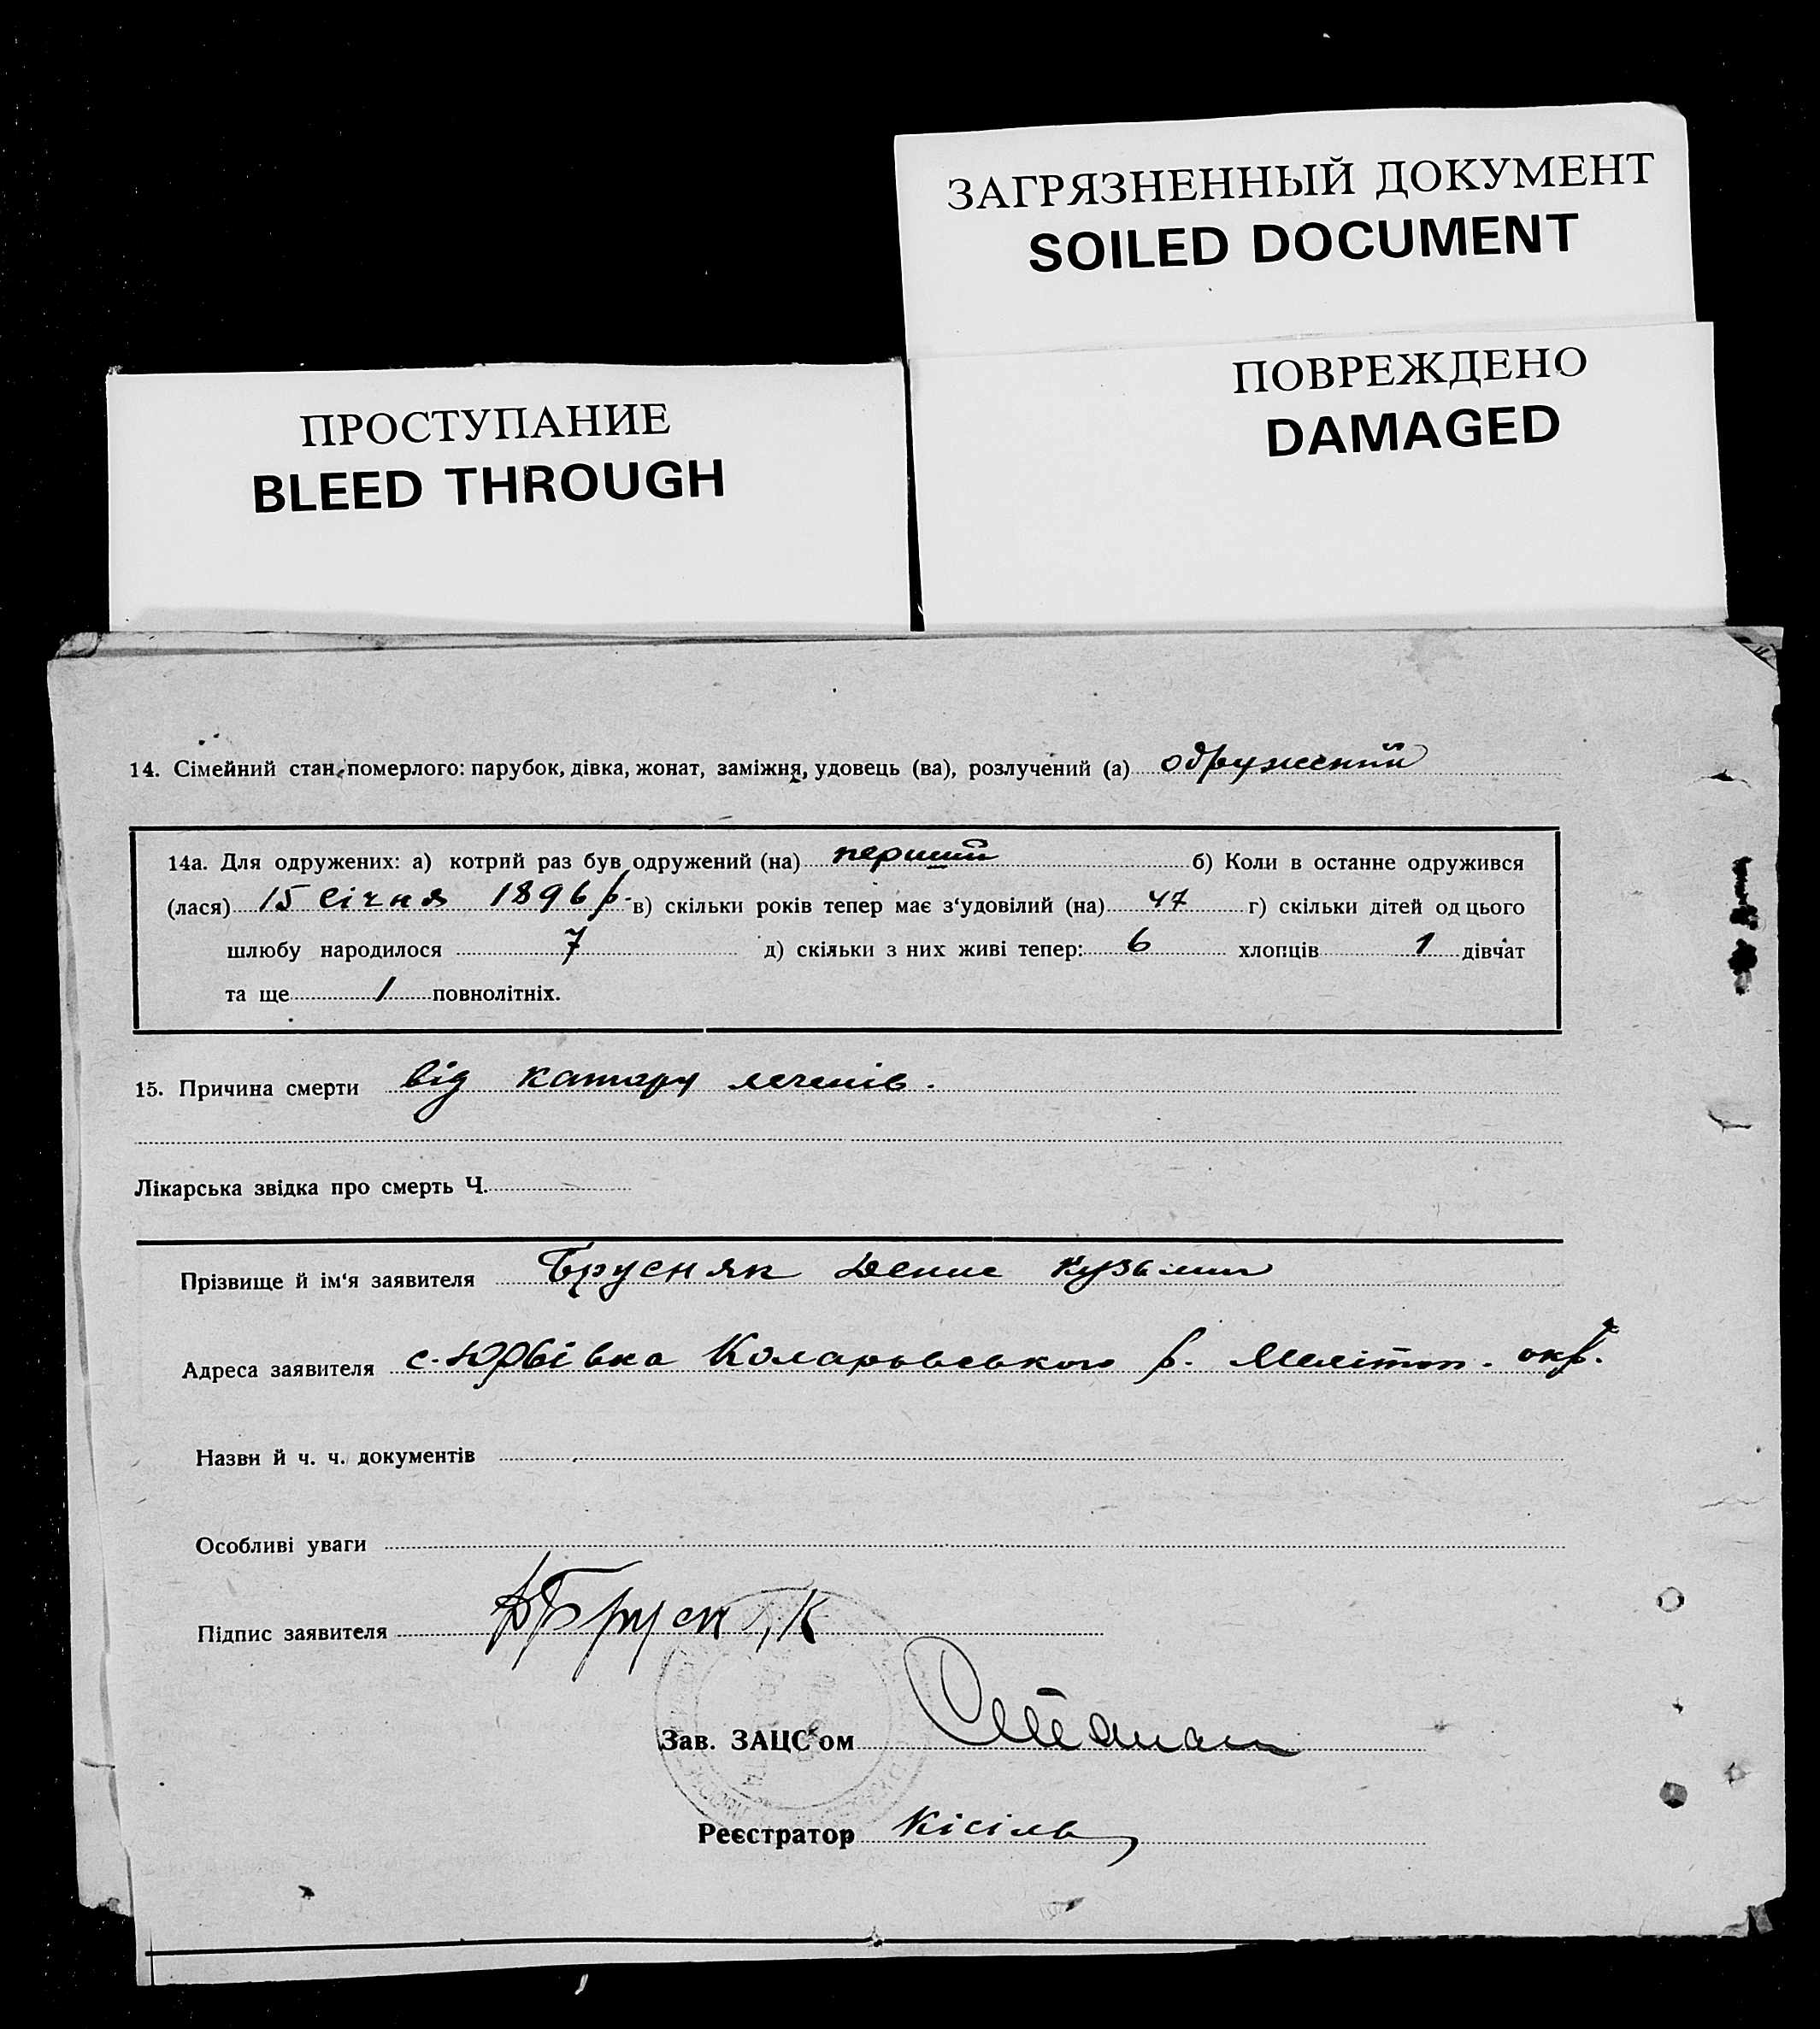 ЗАГРЯЗНЕННЫЙ ДОКУМЕНТ
SOILED DOCUMENT
ПОВРЕЖДЕНО
DAMAGED
ПРОСТУПАНИЕ
BLEED THROUGH
14. Сімейний стан померлого: парубок, дівка, жонат, заміжня, удовець (ва), розлучений (а) одружений
14а. Для одружених: а) котрий раз був одружений (на) перший б) Коли в останне одружився
(лася) 15 січня 1896 р. в) скільки років тепер має з'удовілий (на) 47 г) скільки дітей од цього
шлюбу народилося 7 д) скільки з них живі тепер: 6 хлопців 1 дівчат
та ще 1 повнолітніх.
15. Причина смерти від катару легенів.
Лікарська звідка про смерть Ч.
Прізвище й ім'я заявителя Брусняк Денис Кузьмич
Адреса заявителя с. Юр'ївка Коларовського р. Меліт. окр.
Назви й ч. ч. документів
Особливі уваги
Підпис заявителя ДБрусняк
Зав. ЗАЦС'ом
Реєстратор Кісіль